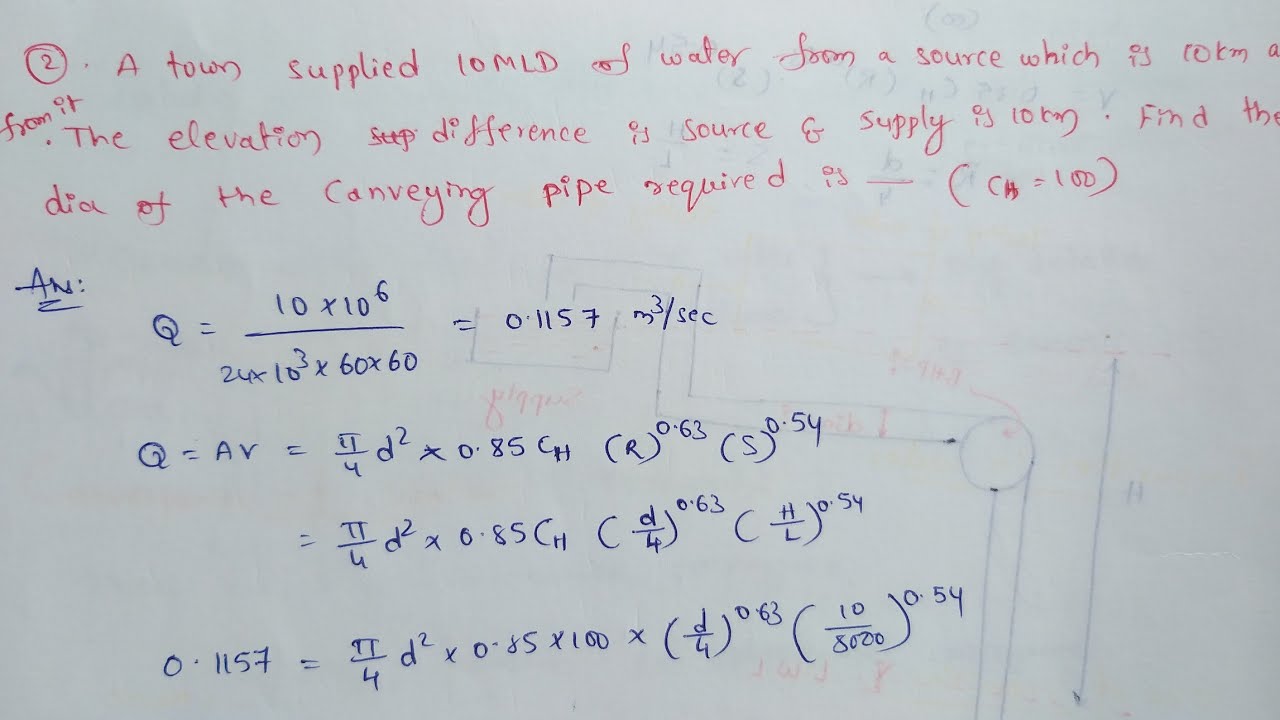 ② . A town supplied 10MLD of water from a source which is 10km a
from it
. The elevation difference is source & supply is 10km . Find the
dia of the Canveying pipe required is — ( CH = 100)
Ans:
Q = 10 × 10⁶ / 24 × 10³ × 60 × 60 = 0.1157 m³/sec
Q = AV = π/4 d² × 0.85 CH (R)^0.63 (S)^0.54
= π/4 d² × 0.85 CH (d/4)^0.63 (H/L)^0.54
0.1157 = π/4 d² × 0.85 × 100 × (d/4)^0.63 (10/8000)^0.54